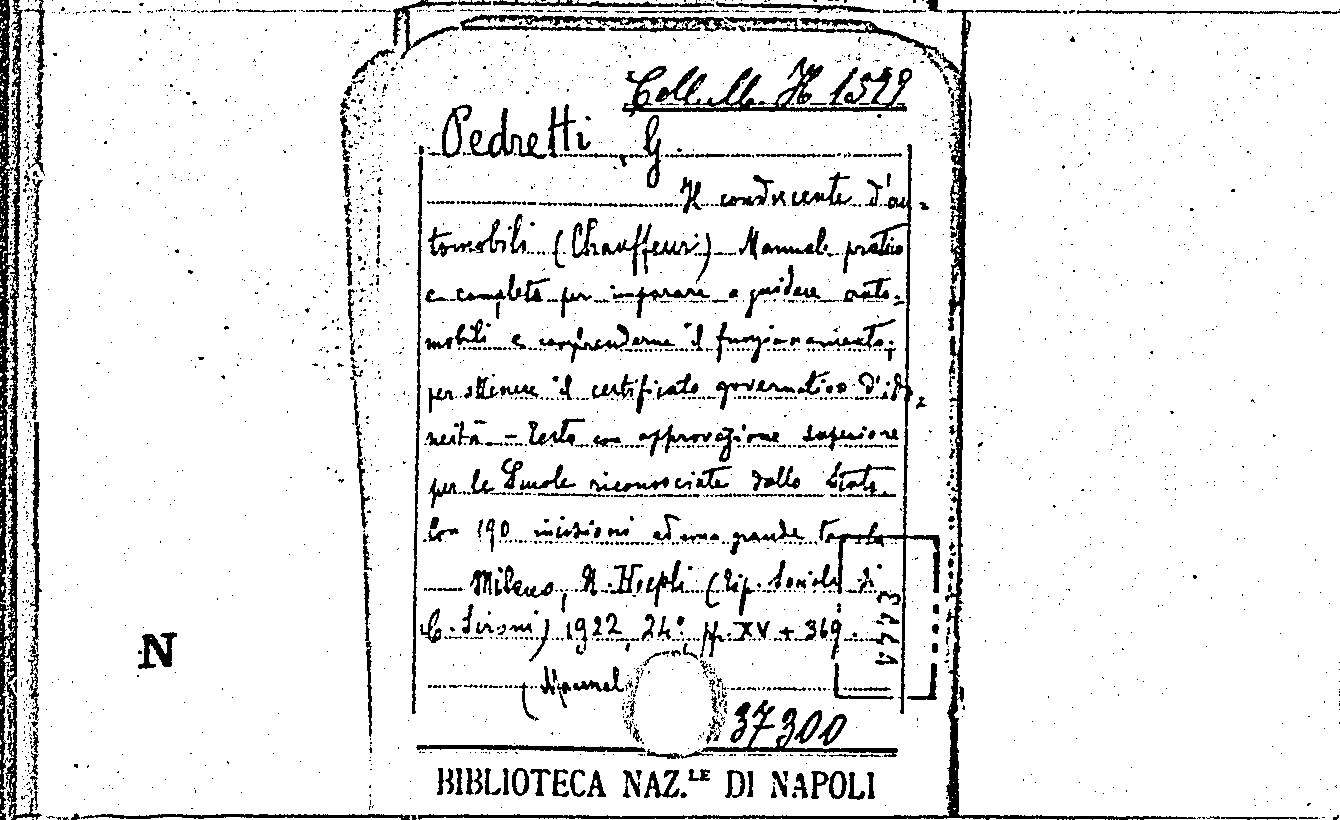 Coll. M. H 1599
Pedretti, G.
Il conducente d'au-
tomobili (Chauffeur) Manuale pratico
e completo per imparare a guidare auto-
mobili e comprenderne il funzionamento;
per ottenere il certificato governativo d'ido-
neità - Testo con approvazione superiore
per le Scuole riconosciute dallo Stato.
Con 190 incisioni ed una grande tavola
Milano, U. Hoepli (Tip. Sociale di
C. Sironi) 1922, 24° pp. XV + 369.
(Manual
37300
N
BIBLIOTECA NAZ.LE DI NAPOLI